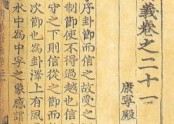 義卷之二十一
康寧殿
序卦節而信之故受之
制節使不得過越也信
守之下則信從之節而
次節也為卦澤上有風
水中為中孚之象感謂